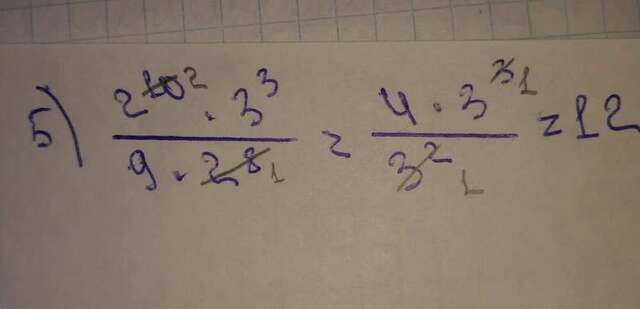 5) 2^10 2 · 3^3 / 9 · 2^8 1 = 4 · 3^3 1 / 3^2 1 = 12